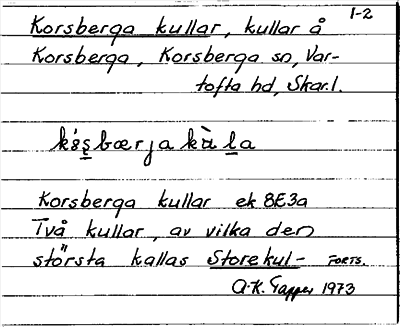 1-2
Korsberga kullar, kullar å
Korsberga, Korsberga sn, Var-
tofta hd, Skar.l.
Korsberga kullar ek 8E3a
Två kullar, av vilka den
största kallas Storekul- FORTS.
A-K. Tapper 1973